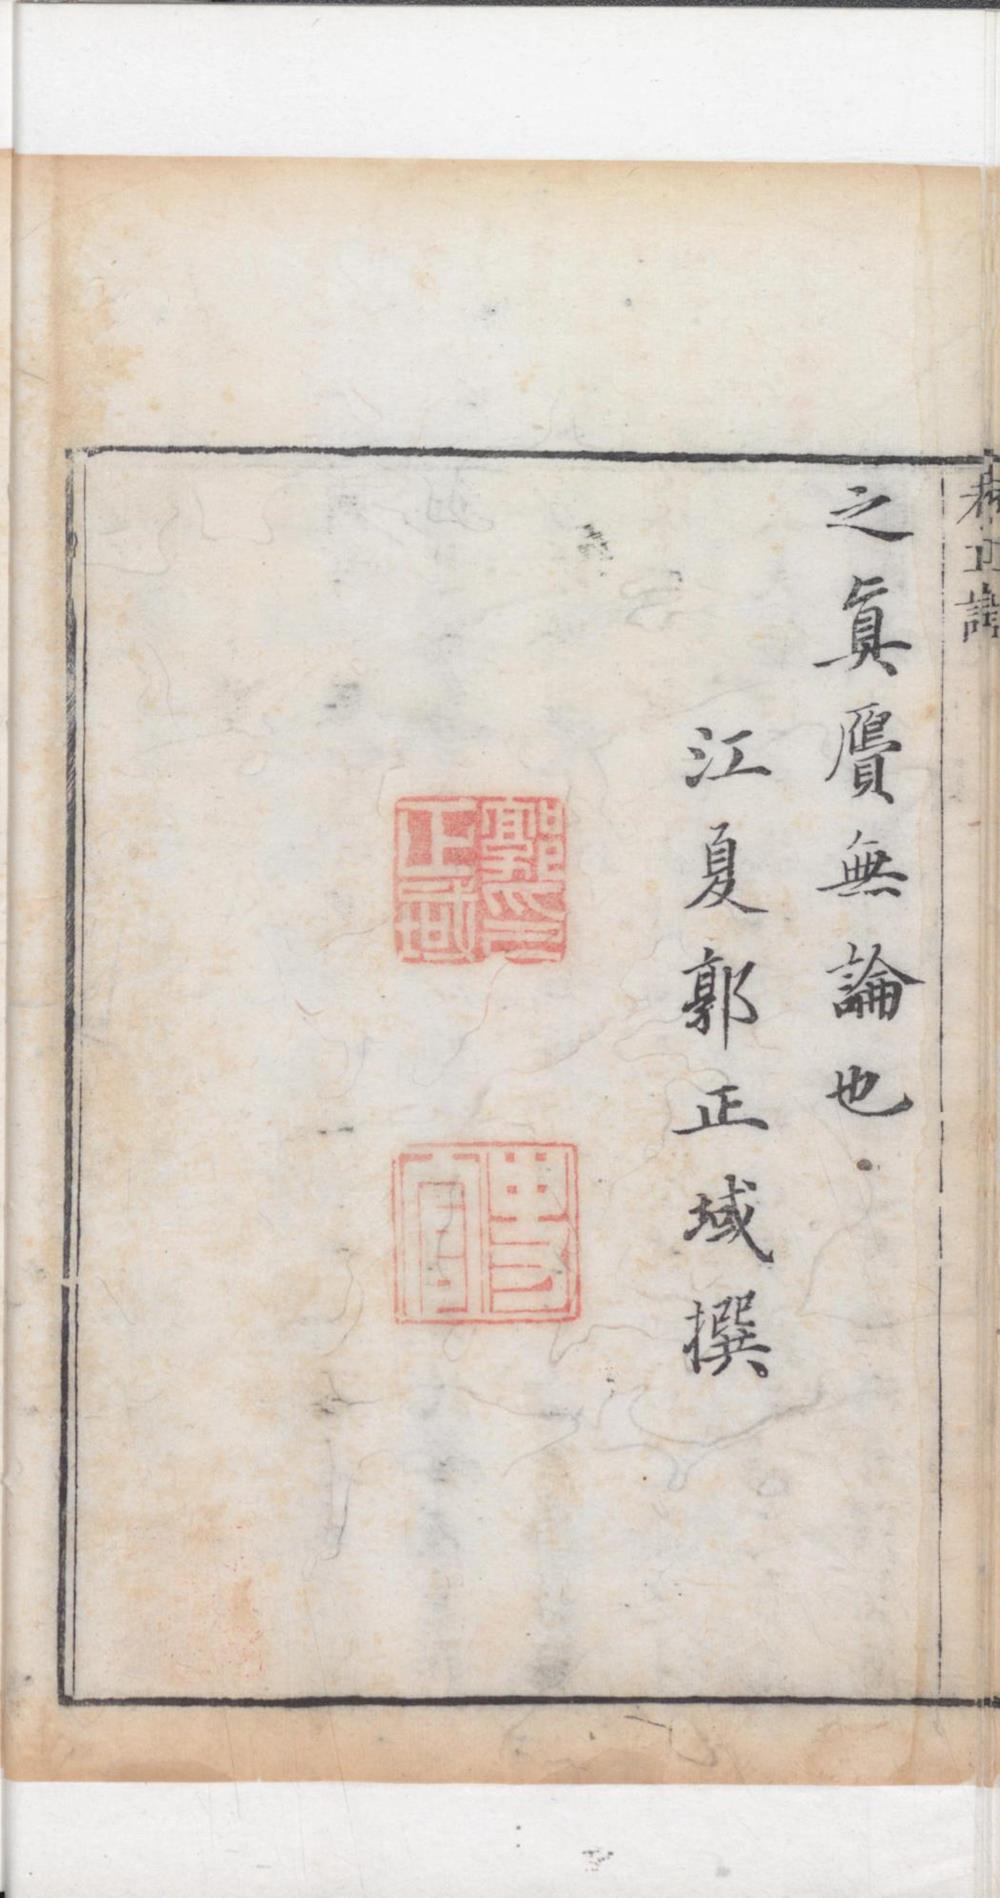 之眞贋無論也
江夏郭正域撰
郭印正域
史官